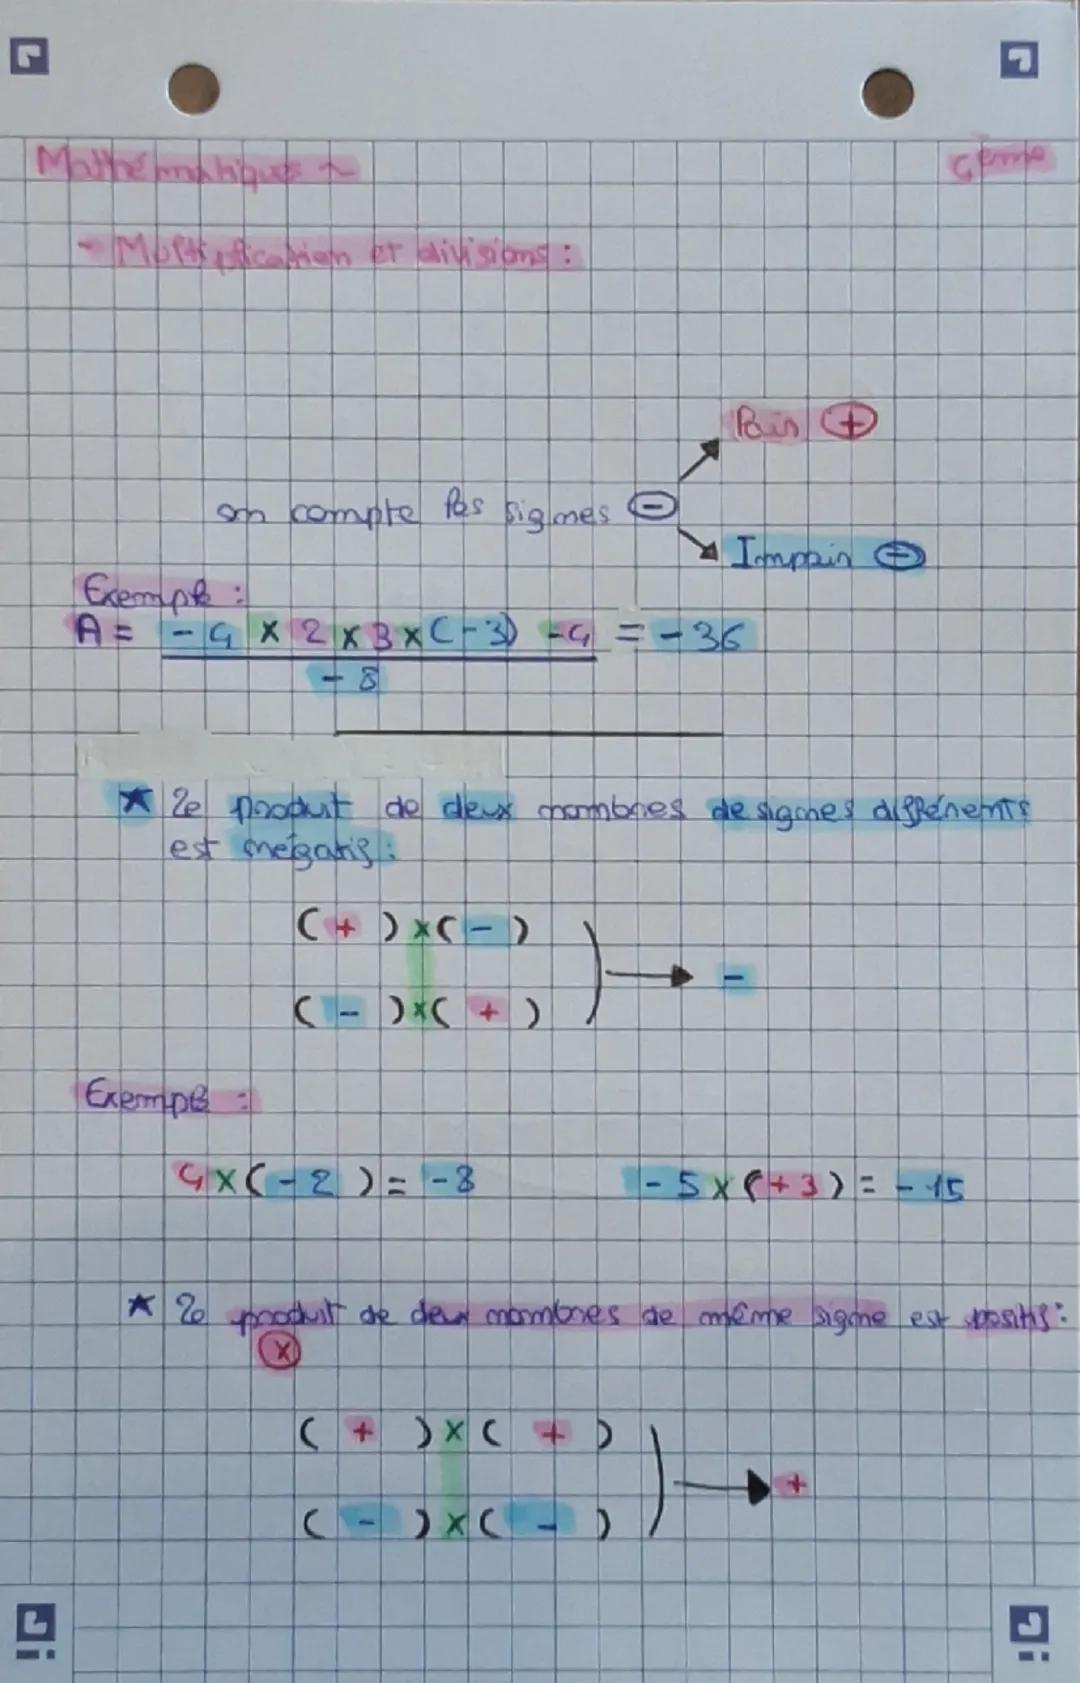 Mathématiques
4ème
- Multiplication et divisions :
Pair +
on compte les signes -
Impair -
Exemple :
A = -4 × 2 × 3 × (-3) -4 = -36
-8
★ Le produit de deux nombres de signes différents
est négatif :
(+) × (-)
-
(-) × (+)
Exemple :
4 × (-2) = -8
-5 × (+3) = -15
★ Le produit de deux nombres de même signe est positif :
×
(+) × (+)
+
(-) × (-)